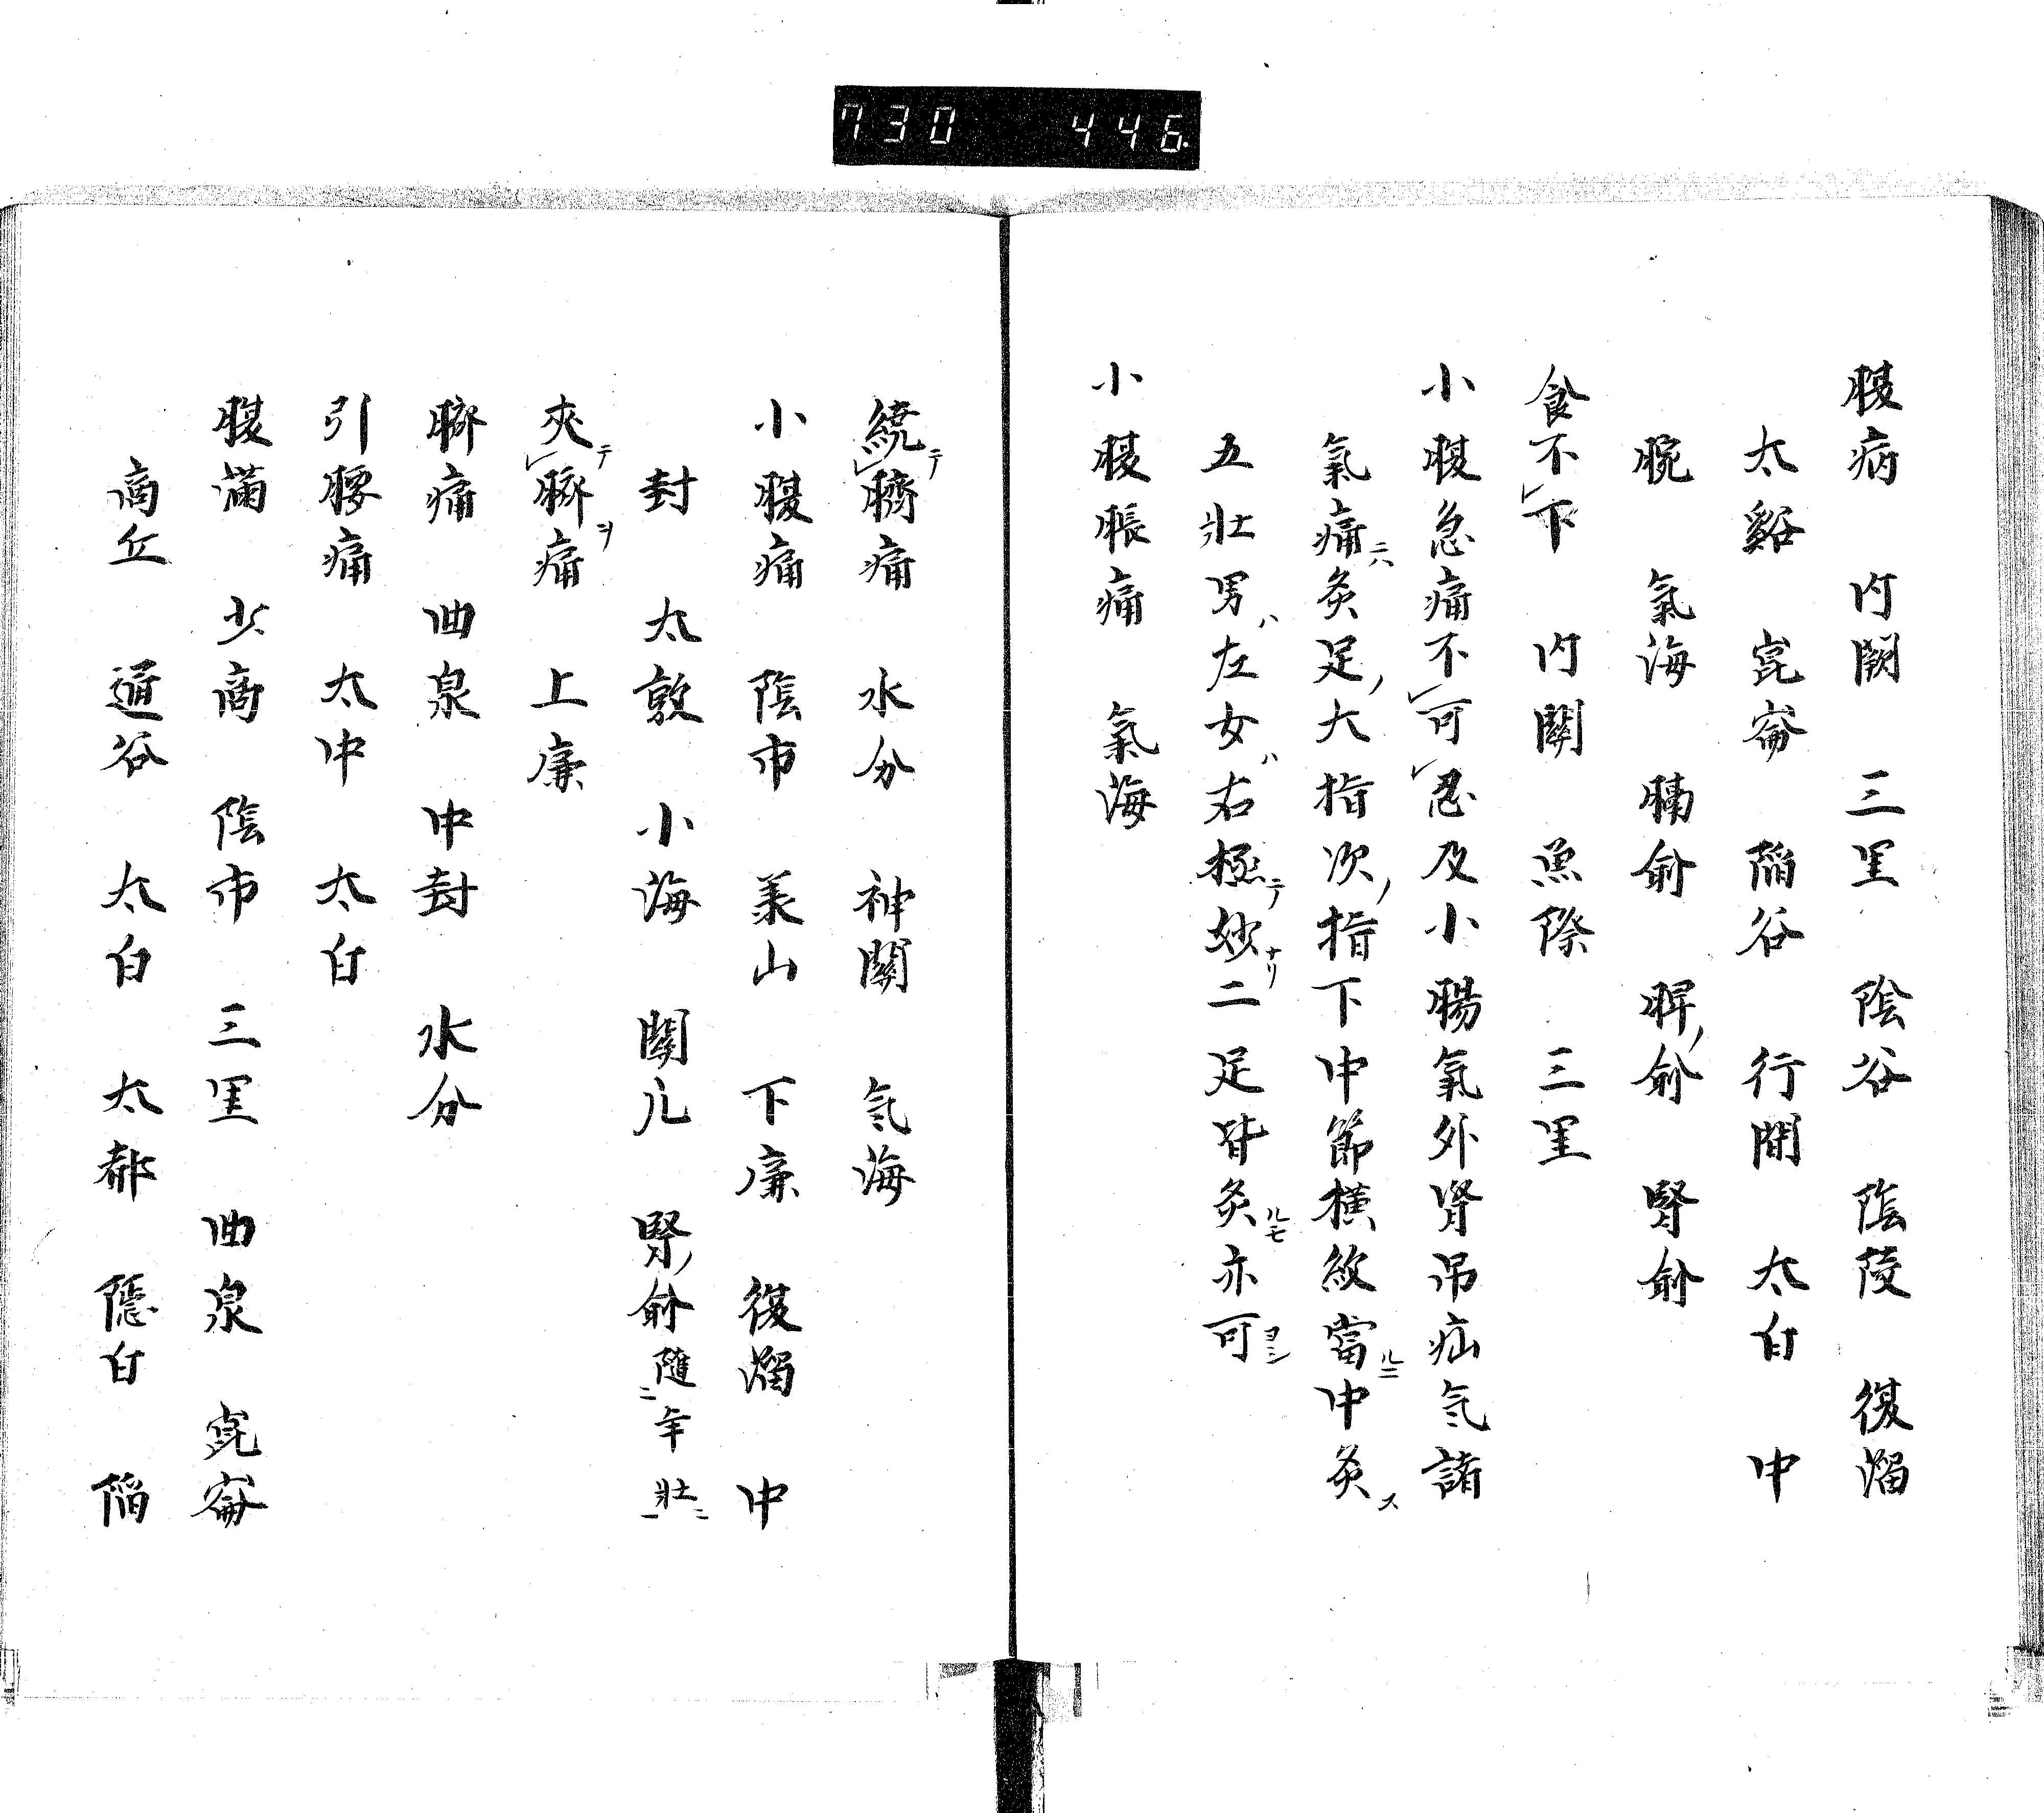 730 446
腹病 内關 三里 陰谷 陰陵 復溜
太谿 崑崙 陷谷 行間 太白 中
腕 氣海 膈俞 脾ノ俞 腎俞
食不下 内關 魚際 三里
小腹急痛不可忍及小腸氣外腎吊疝気諸
氣痛ニハ灸足ノ大指次ノ指下中節横紋當ルニ中灸ス
五壯男ハ左女ハ右極テ妙ナリ二足皆灸ルモ亦可ヨシ
小腹脹痛 氣海
繞テ臍痛 水分 神闕 気海
小腹痛 陰市 羕山 下廉 復溜 中
封 太敦 小海 關儿 腎ノ俞 隨ニ年壮ニ一
夾テ臍ヲ痛 上廉
臍痛 曲泉 中封 水分
引腰痛 太冲 太白
腹滿 少商 陰市 三里 曲泉 崑崙
商丘 通谷 太白 太都 隱白 陷